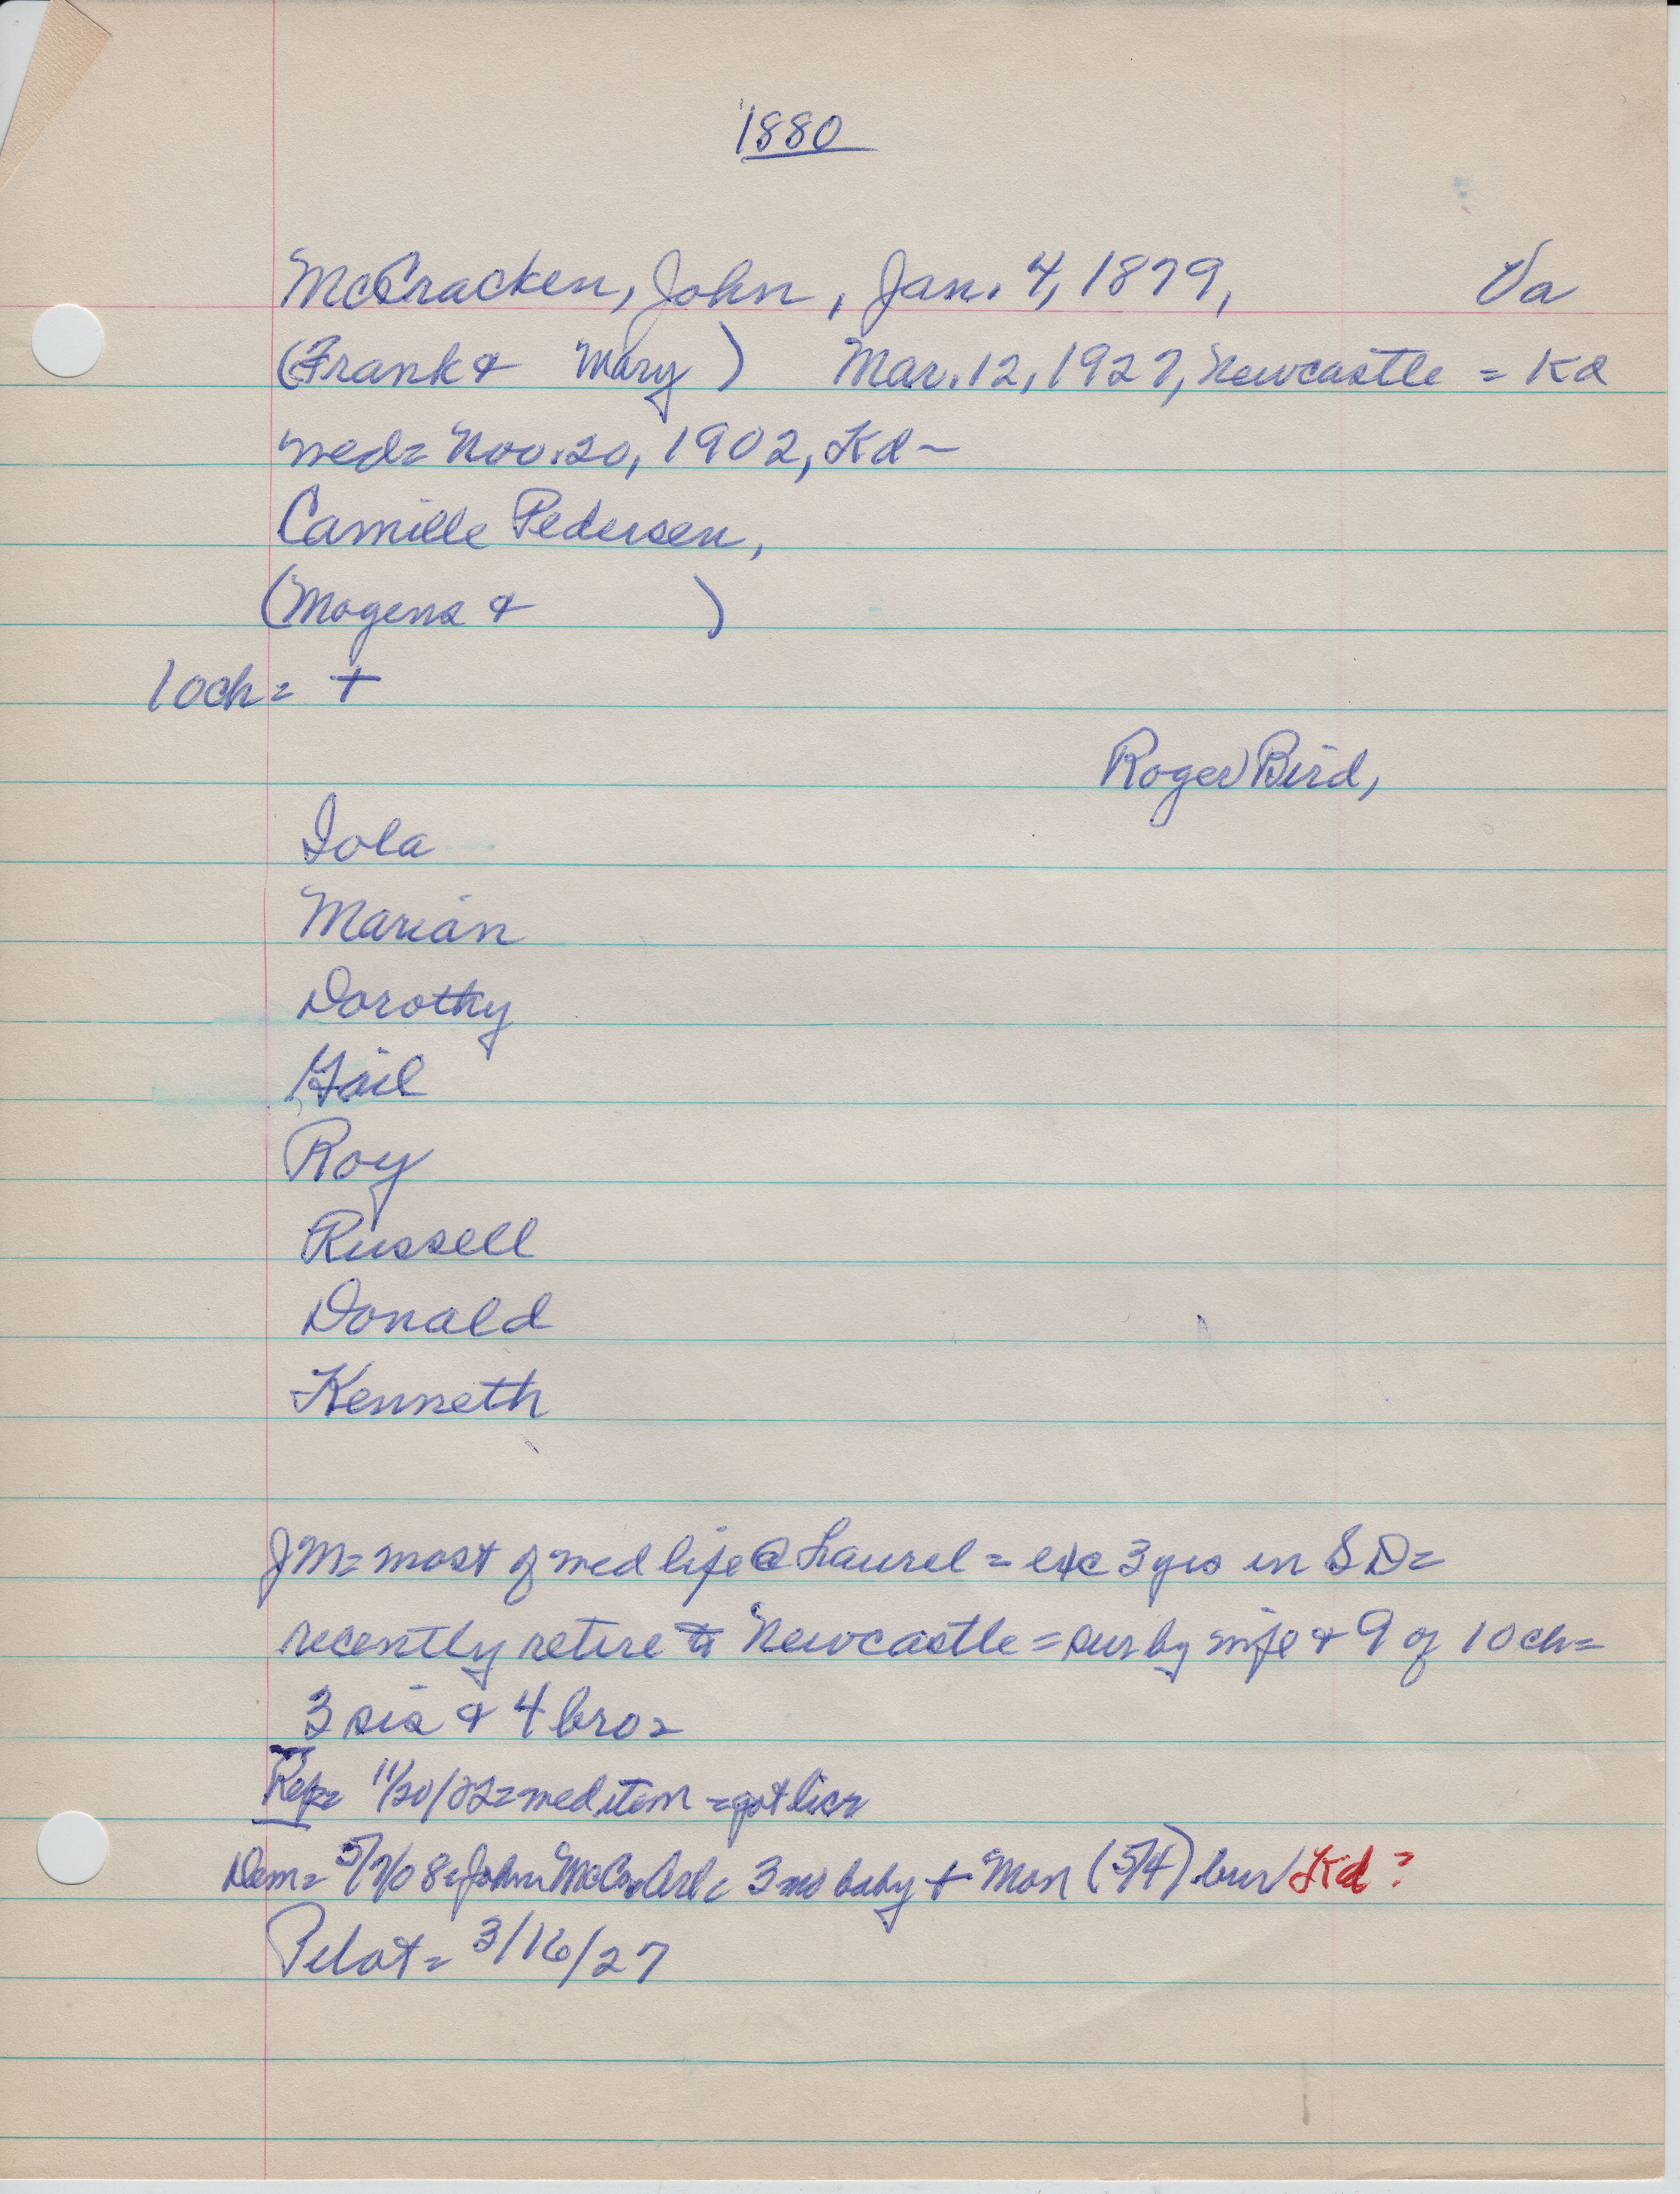 1880
McCracken, John, Jan. 4, 1879, Va
(Frank & Mary) Mar. 12, 1927, Newcastle = Kd
med= Nov. 20, 1902, Kd-
Camille Pedersen,
(Mogens & )
10ch= +
Roger Bird,
Iola
Marian
Dorothy
Gail
Roy
Russell
Donald
Kenneth
JM= most of med life @ Laurel = exc 3 yrs in SD=
recently retire to Newcastle = sur by wife & 9 of 10 ch=
3 sis & 4 bro=
Rep= 11/20/02= med item = got lic
Dem= 5/7/08= John McC 3 mo baby + Mon (5/4) bur Kd?
Pilot= 3/16/27